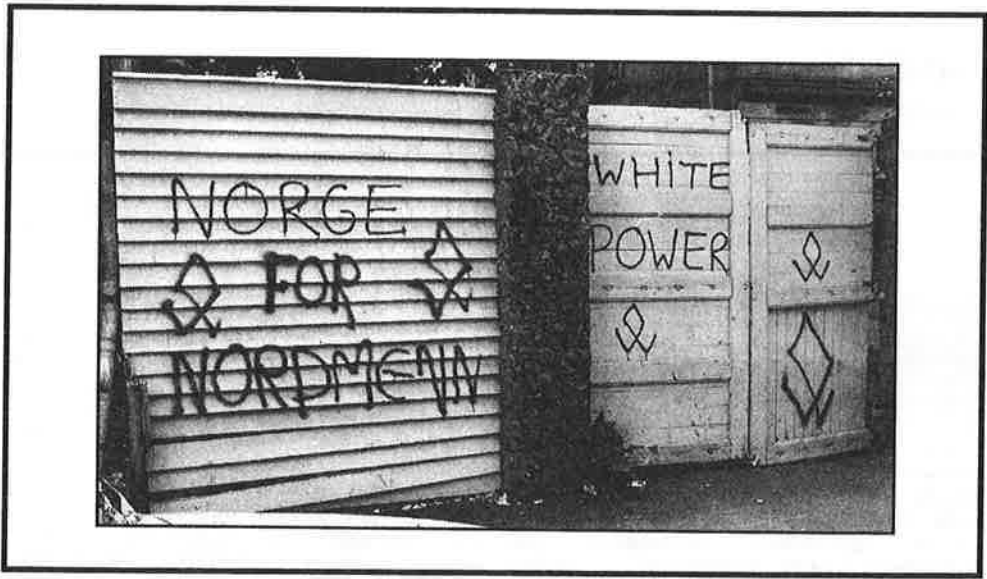 NORGE
FOR
NORDMENN
WHITE
POWER